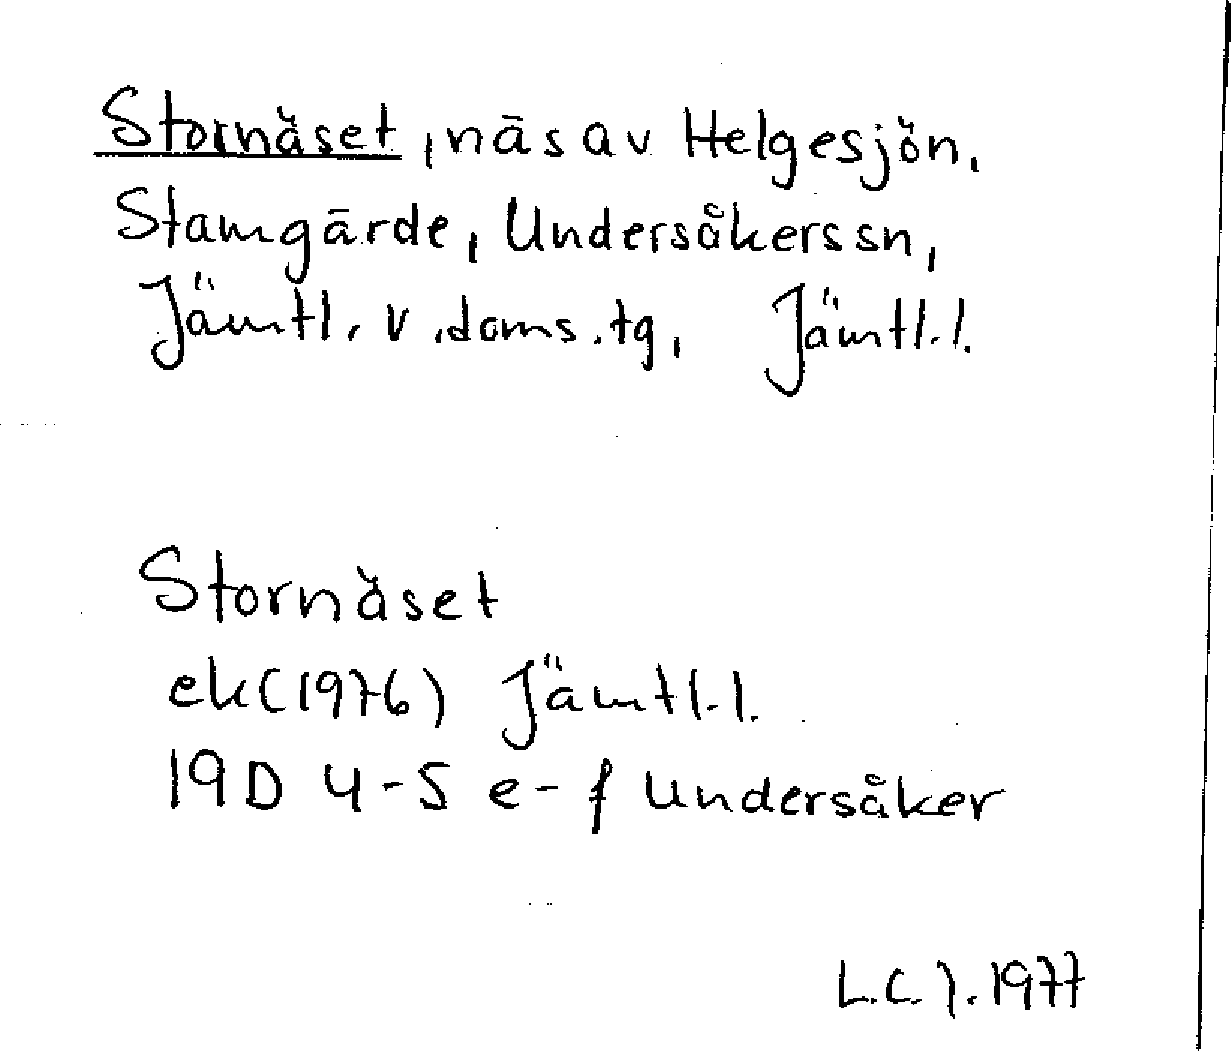 Stornäset, näs av Helgesjön.
Stamgärde, Undersåkers sn,
Jämtl. v. doms. tg, Jämtl. l.
Stornäset
ek (1976) Jämtl. l.
19D 4-5 e-f Undersåker
L.C.J. 1977